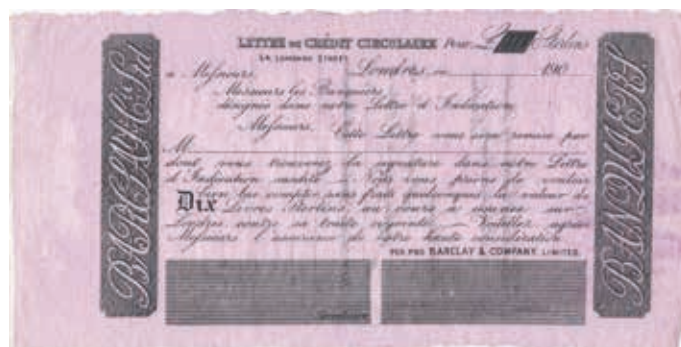 BARCLAY & Co Ltd
LETTRE DE CRÉDIT CIRCULAIRE Pour £ Sterling
54, LOMBARD STREET
à Messieurs, Londres, 190
Messieurs les Banquiers
désignés dans notre Lettre d'Indication
Messieurs, Cette Lettre vous sera remise par
M
dont vous trouverez la signature dans notre Lettre
d'Indication Nous vous prions de vouloir
lui compter sans frais quelconques la valeur de
Dix Livres Sterling, au cours à usance sur
Londres contre sa traite Veuillez agréer
Messieurs l'assurance de notre haute considération
PER PRO BARCLAY & COMPANY, LIMITED.
BANQUIERS